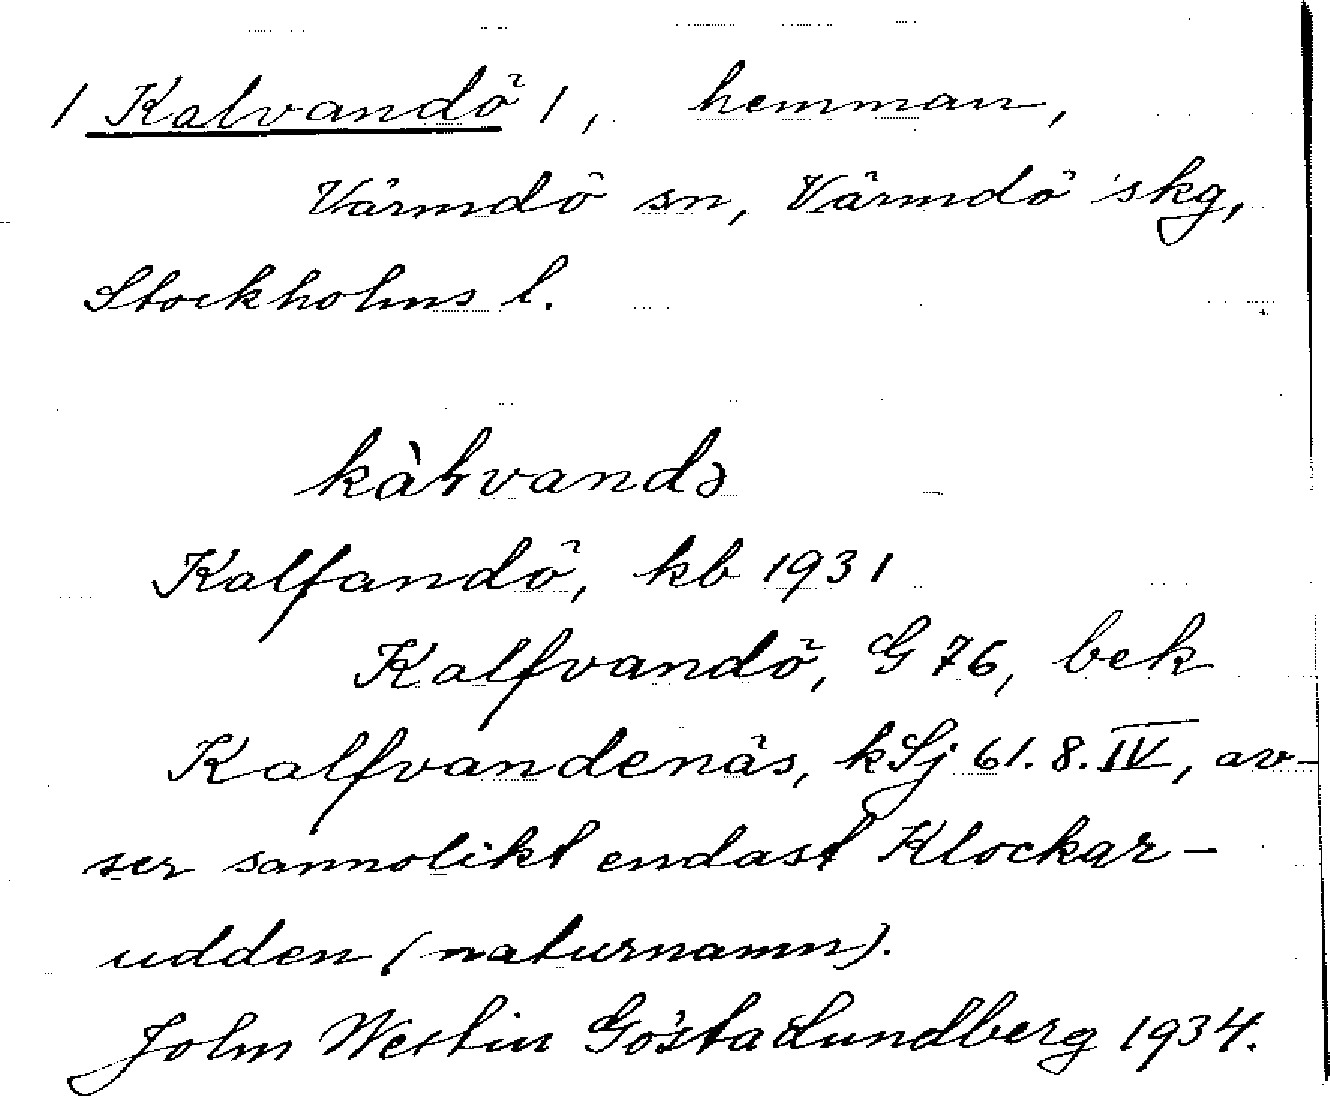 / Kalvandö /, hemman,
Värmdö sn, Värmdö skg,
Stockholms l.
kàƚvandə
Kalfandö, kb 1931
Kalfvandö, G 76, bek
Kalfvandenäs, kSj 61.8.IV, av-
ser sannolikt endast Klockar-
udden (naturnamn).
John Westin Gösta Lundberg 1934.